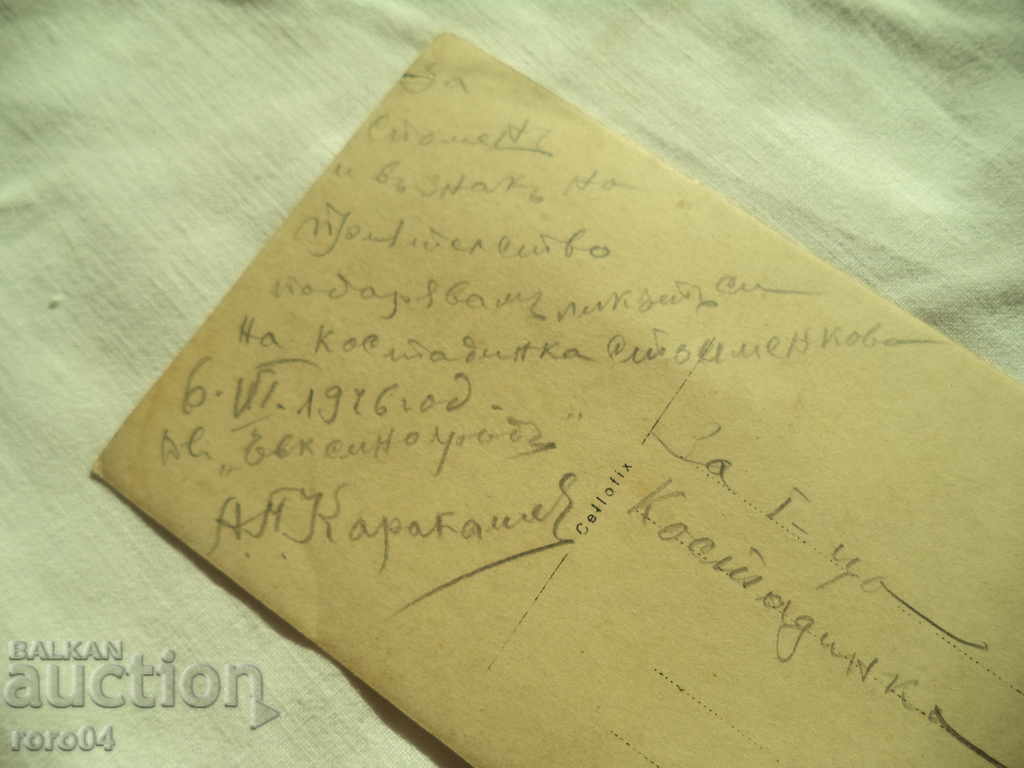 За
споменъ
и въ знакъ на
Приятелство
подарявамъ ликътъ си
на Костадинка Стоименкова
6. VI. 1946 год.
Дв. „Евксиноградъ"
А. П. Каракашев
Cellofix
За Г-ца
Костадинка
BALKAN
auction
roro04